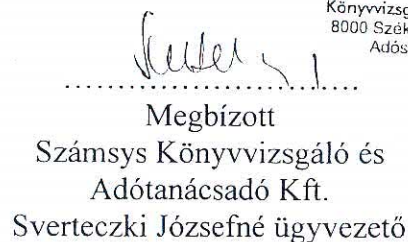 Könyvvizsg
8000 Szék
Adós
Megbízott
Számsys Könyvvizsgáló és
Adótanácsadó Kft.
Sverteczki Józsefné ügyvezető